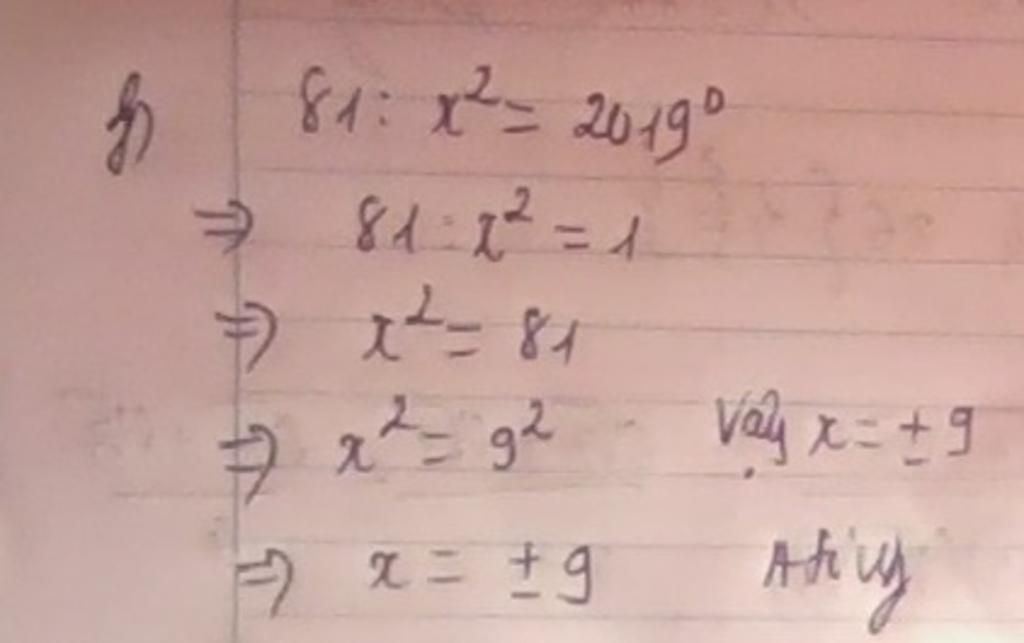 81 : x² = 2019⁰
⇒ 81 : x² = 1
⇒ x² = 81
⇒ x² = 9² Vậy x = ± 9
⇒ x = ± 9